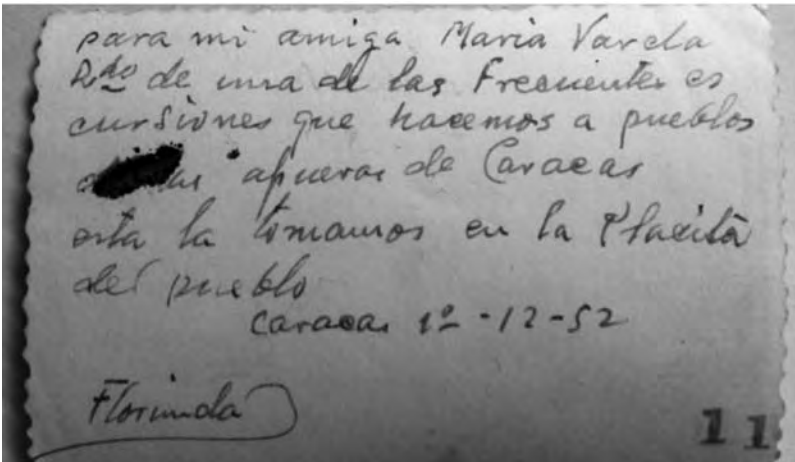 para mi amiga Maria Varela
Rdo de una de las Frecuentes es
cursiones que hacemos a pueblos
afueras de Caracas
esta la tomamos en la Placita
del pueblo
Caracas 1º -12-52
Florinda
11